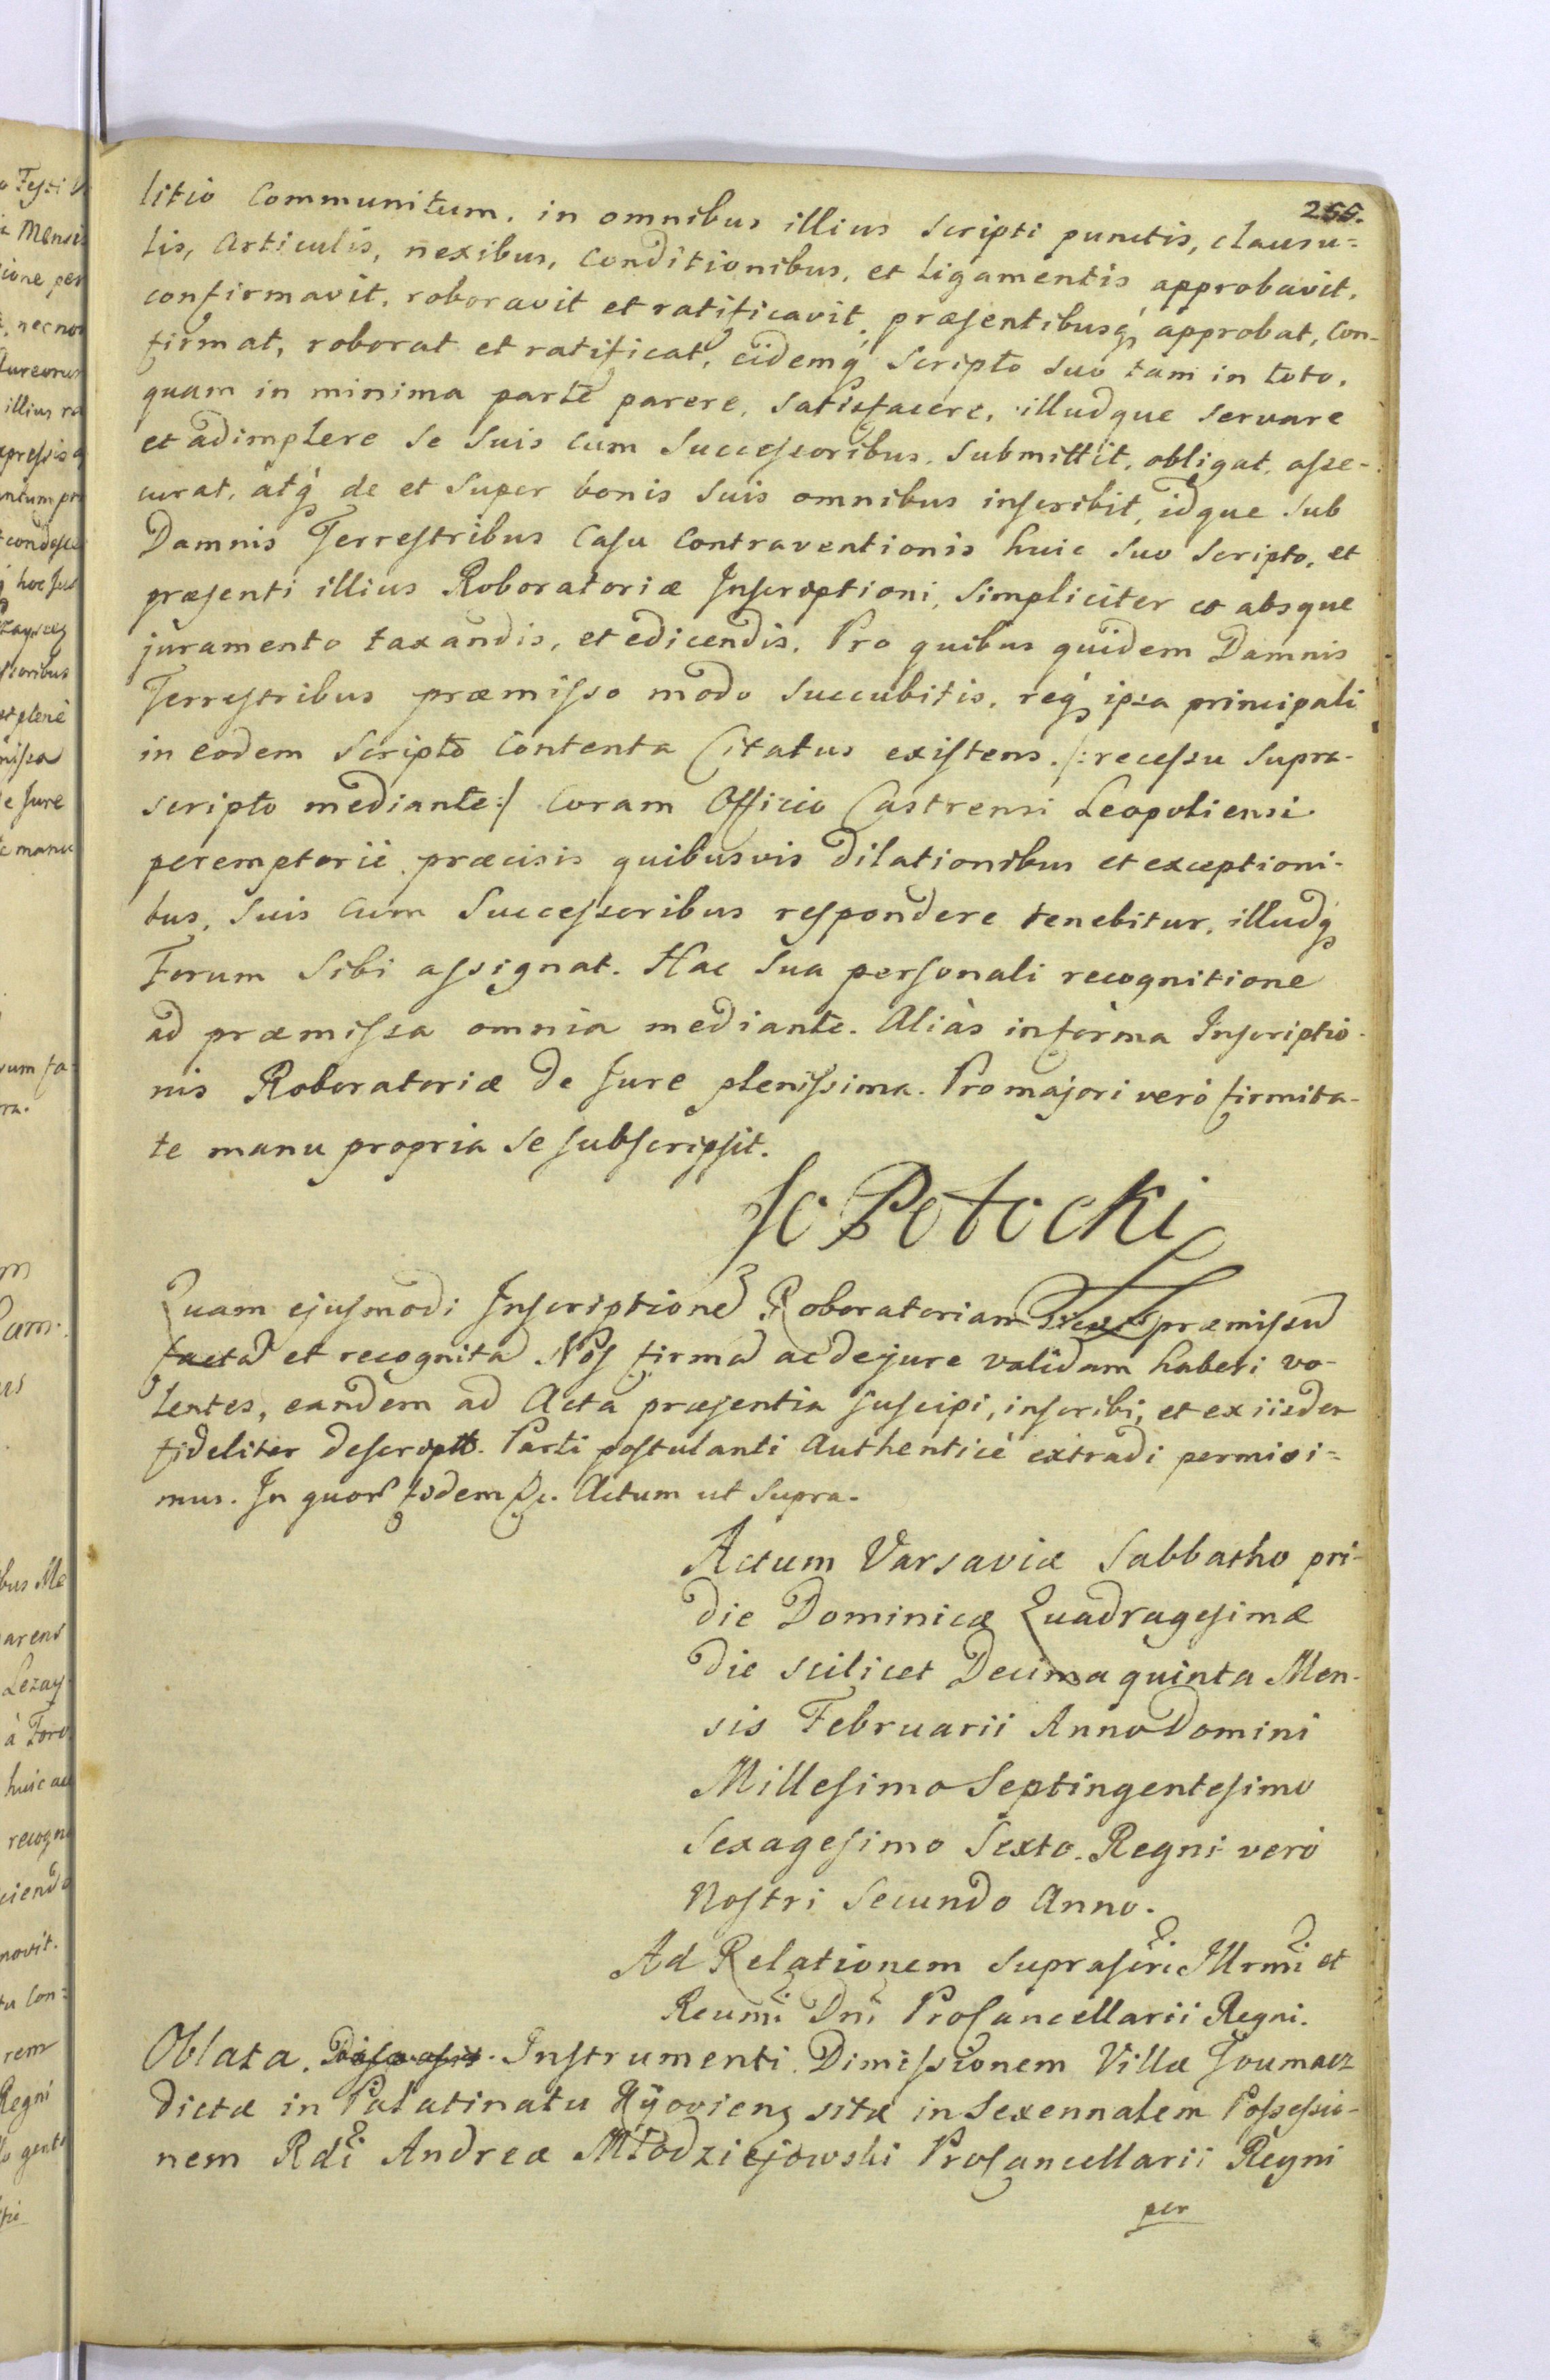 255.
litio Communitum. in omnibus illius Scripti punctis, clausu=
lis, Articulis, nexibus, Conditionibus, et Ligamentis approbavit,
confirmavit, roboravit et ratificavit, præsentibusq́ approbat, Con-
firmat, roborat et ratificat, eidemq́ Scripto suo tam in toto,
quam in minima parte parere, Satisfacere, illudque servare
et adimplere se Suis cum Successoribus. Submittit, obligat, asse-
curat, atq́ de et Super bonis Suis omnibus inscribit, idque Sub
Damnis Terrestribus Casu Contraventionis huic Suo Scripto, et
præsenti illius Roboratoriæ Inscriptioni, Simpliciter et absque
juramento taxandis, et edicendis. Pro quibus quidem Damnis
Terrestribus præmisso modo Succubitis, req́ ipsa principali
in eodem Scripto Contenta Citatus existens. /: recessu Supra-
scripto mediante :/ Coram Officio Castrensi Leopoliensi
peremptorié præcisis quibusvis dilationibus et exceptioni-
bus, Suis Cum Successoribus respondere tenebitur, illudq́
Forum Sibi assignat. Hac Sua personali recognitione
ad præmissa omnia mediante. Aliàs in forma Inscriptio-
nis Roboratoriæ de Jure plenissima. Pro majori veró firmita-
te manu propria Se subscripsit.
Potocki
Quam ejusmodi Inscriptione Roboratoriam præmissu
facta et recognita Nos firma ac de jure validam haberi vo-
lentes, eandem ad Acta præsentia suscipi, inscribi, et ex iisdem
fideliter descript. Parti postulanti Authenticè extradi permisi=
mus. In quor fidem &c. Actum ut Supra.
Actum Varsaviæ Sabbatho pri-
die Dominicæ Quadragesimæ
die scilicet Decima quinta Men-
sis Februarii Anno Domini
Millesimo Septingentesimo
Sexagesimo Sexto. Regni veró
Nostri Secundo Anno.
Ad Relationem suprascri Illrmi et
Reumi Dni Procancellarii Regni.
Oblata. Instrumenti Dimissionem Villæ
dictæ in Palatinatu Kÿovien sitæ in Sexennalem Possessio-
nem Rdi Andreæ Młodziejowski Procancellarii Regni
per